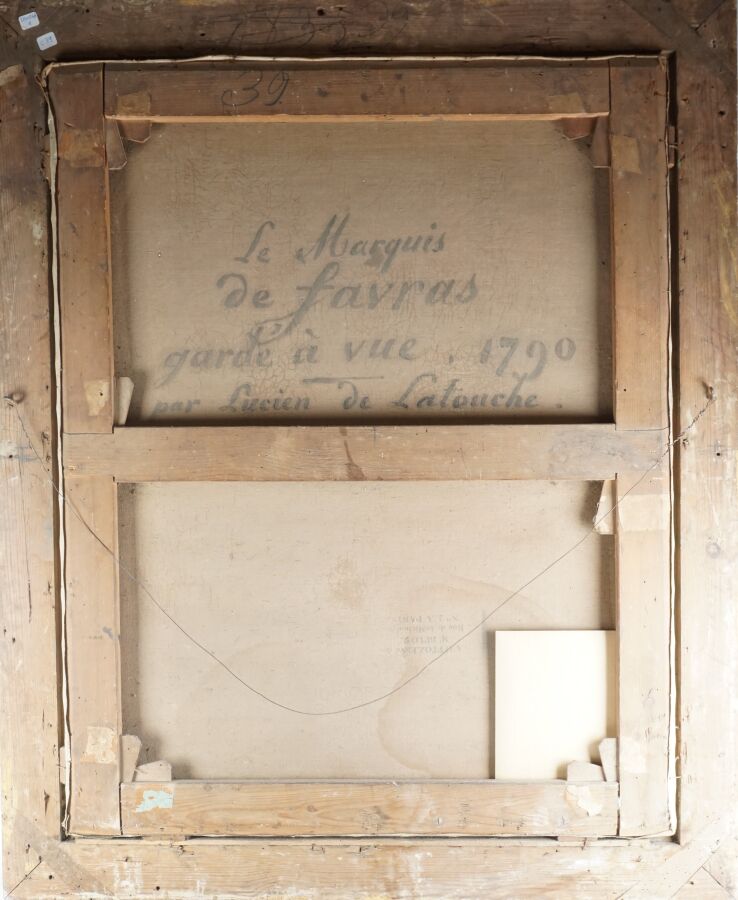 39
Le Marquis
de favras
garde à vue. 1790
par Lucien de Latouche.